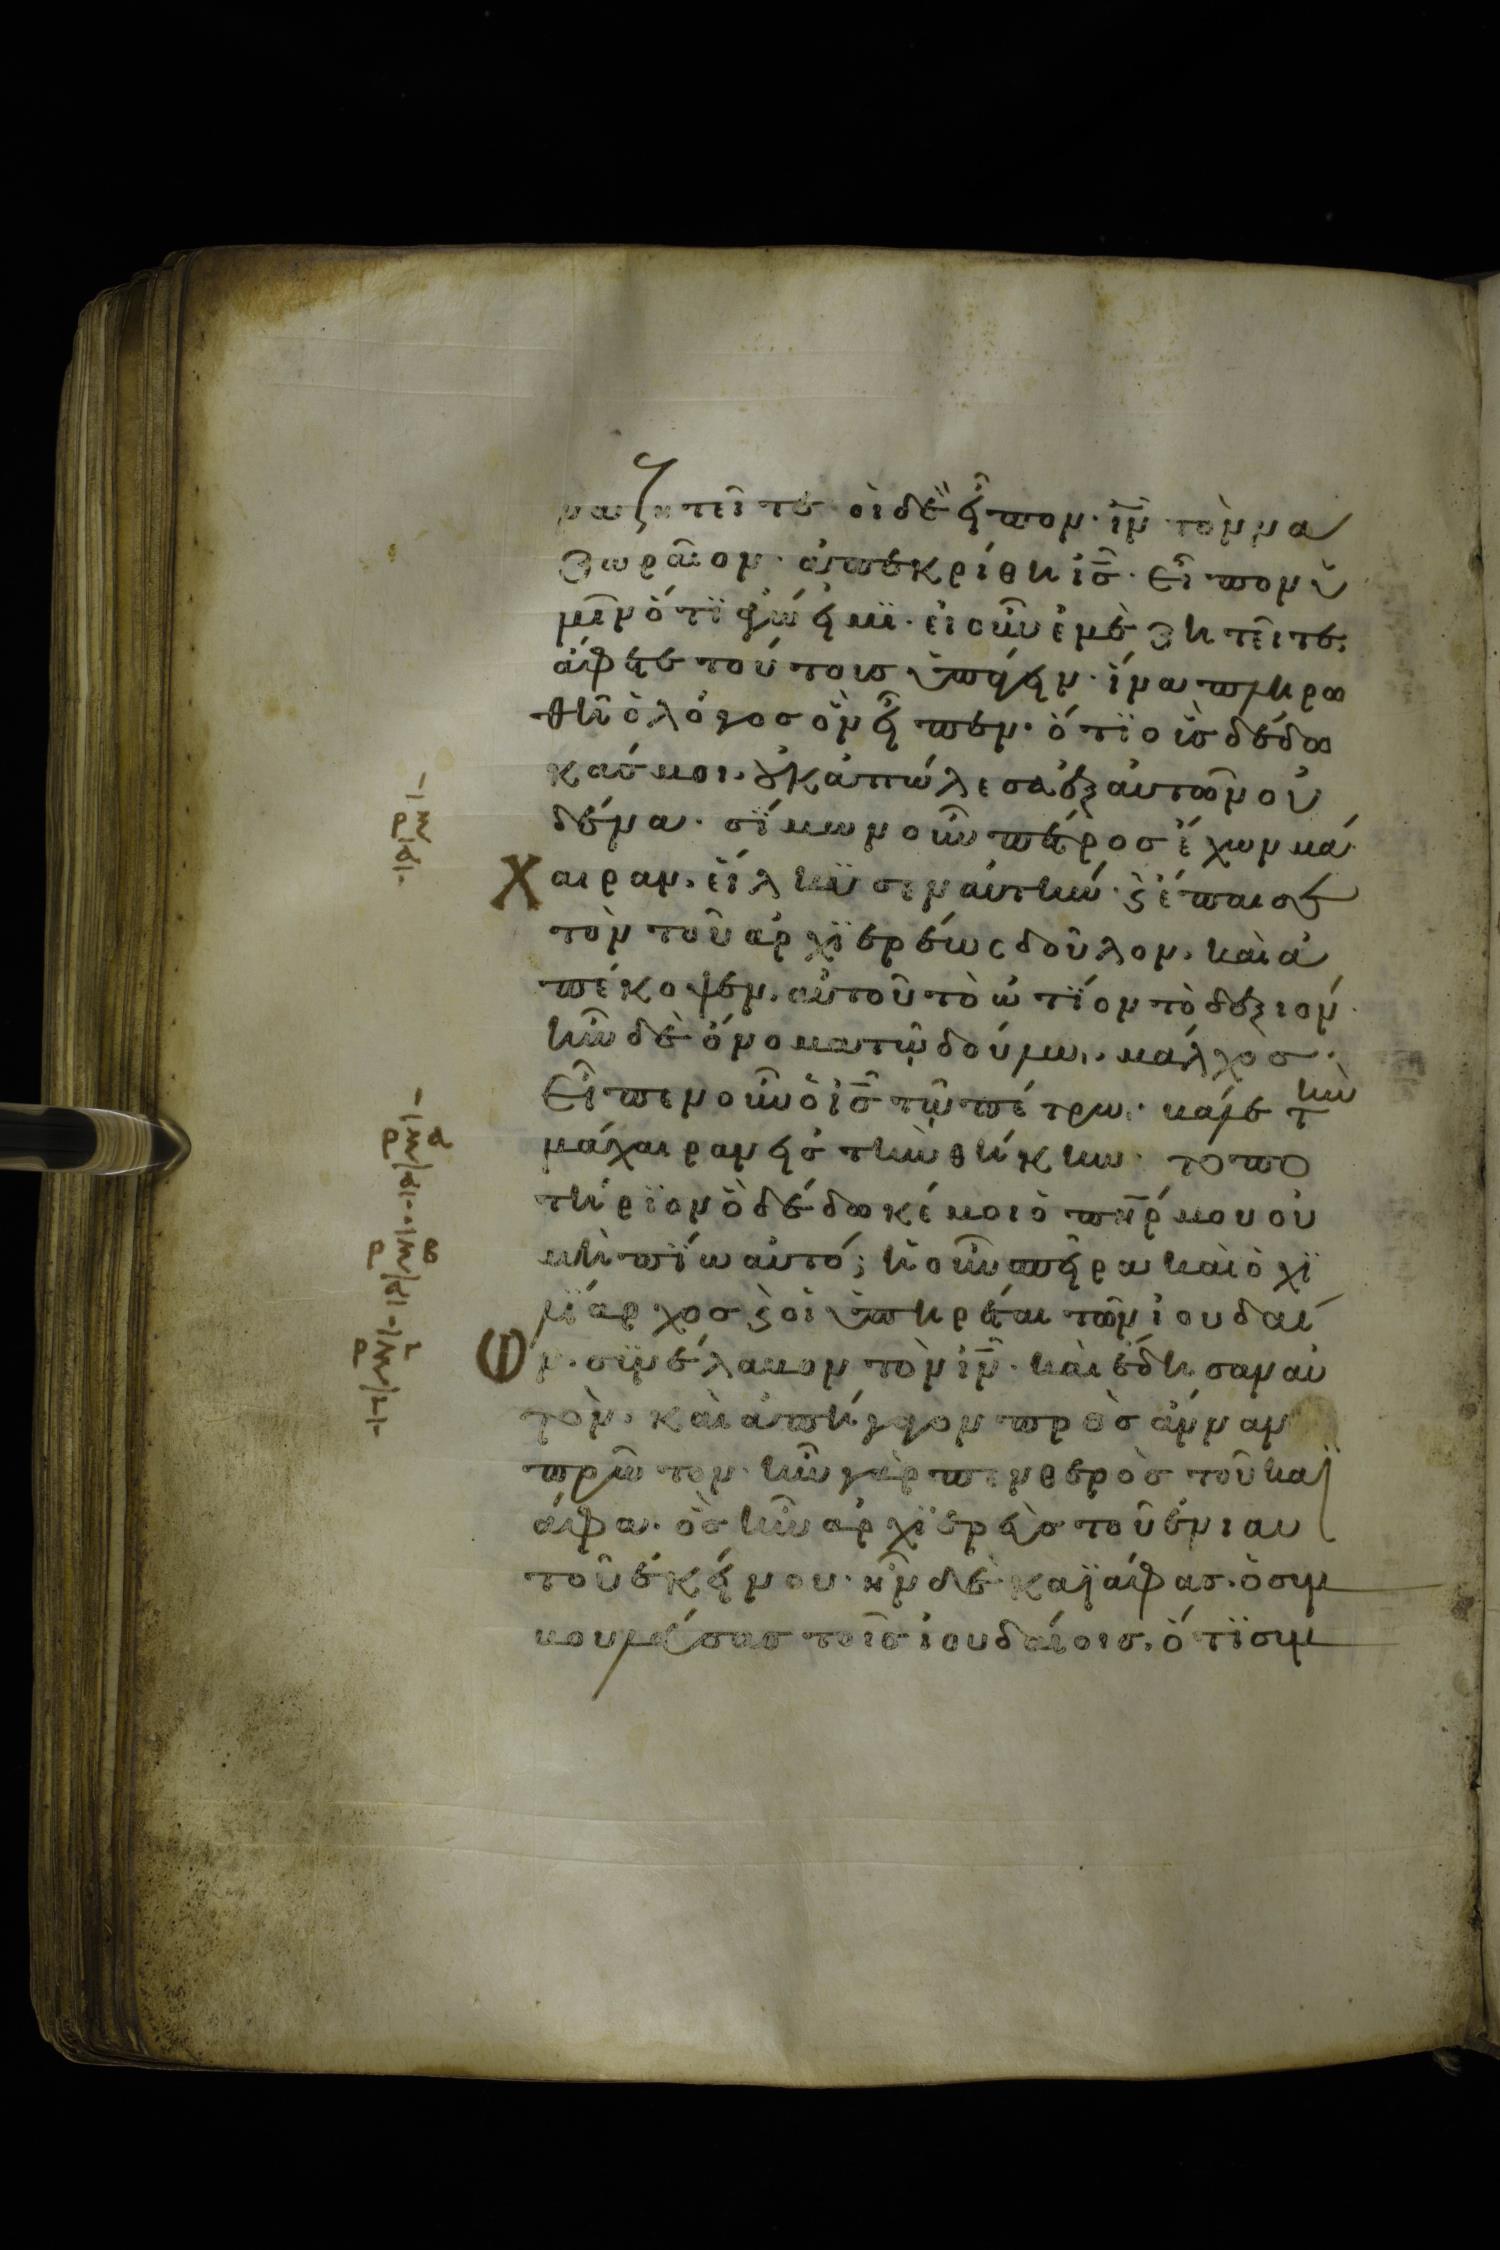 να ζητεῖτε· οἱ δὲ εἶπον· ἰν̅ τὸν να
ζωραῖον· ἀπεκρίθη ἰσ̅· εἶπον ὑ
μῖν ὅτϊ ἐγώ εἰμϊ· εἰ οὖν ἐμὲ ζητεῖτε,
ἄφετε τούτουσ ὑπάγειν· ἵνα πληρω
θῆ ὁ λόγοσ ὃν εἶπεν· ὅτϊ οὓσ δέδω
κάσ μοι, οὐκ ἀπώλεσα ἐξ αὐτῶν οὐ
δένα· σίμων οὖν πέτροσ ἔχων μά
χαιραν, εἵλκϋσεν αὐτήν· ϗ ἔπαισε
τὸν τοῦ ἀρχϊερέως δοῦλον, καὶ ἀ
πέκοψεν, αὐτοῦ τὸ ὠτίον τὸ δεξιόν·
ἦν δὲ ὄνομα τῷ δούλω, μάλχοσ·
Εἶπεν οὖν ὁ ἰσ̅ τῶ πέτρω· βάλε τὴν
μάχαιραν εἰσ τὴν θήκην· τὸ πο
τήρϊον ὃ δέδωκέ μοι ὁ πη̅ρ μου οὐ
μὴ πίω αὐτό; ἡ οὖν σπεῖρα καὶ ὁ χϊ
λϊαρχοσ ϗ οἱ ὑπηρέται τῶν ἰουδαί
ων· σϋνέλαβον τὸν ἰν̅· καὶ ἔδησαν αὐ
τὸν, καὶ ἀπήγαγον πρὸσ ἄνναν
πρῶτον· ἦν γὰρ πενθερὸσ τοῦ καϊ
άφα· ὃσ ἦν ἀρχϊερεὺσ τοῦ ἐνιαυ
τοῦ ἐκείνου· ἦν δὲ καϊάφασ· ὁ συμ
βουλεύσασ τοῖσ ἰουδαίοισ, ὅτϊ συμ